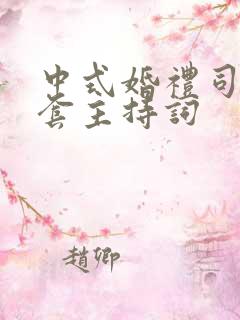 中式婚禮司
套主持詞
趙卿